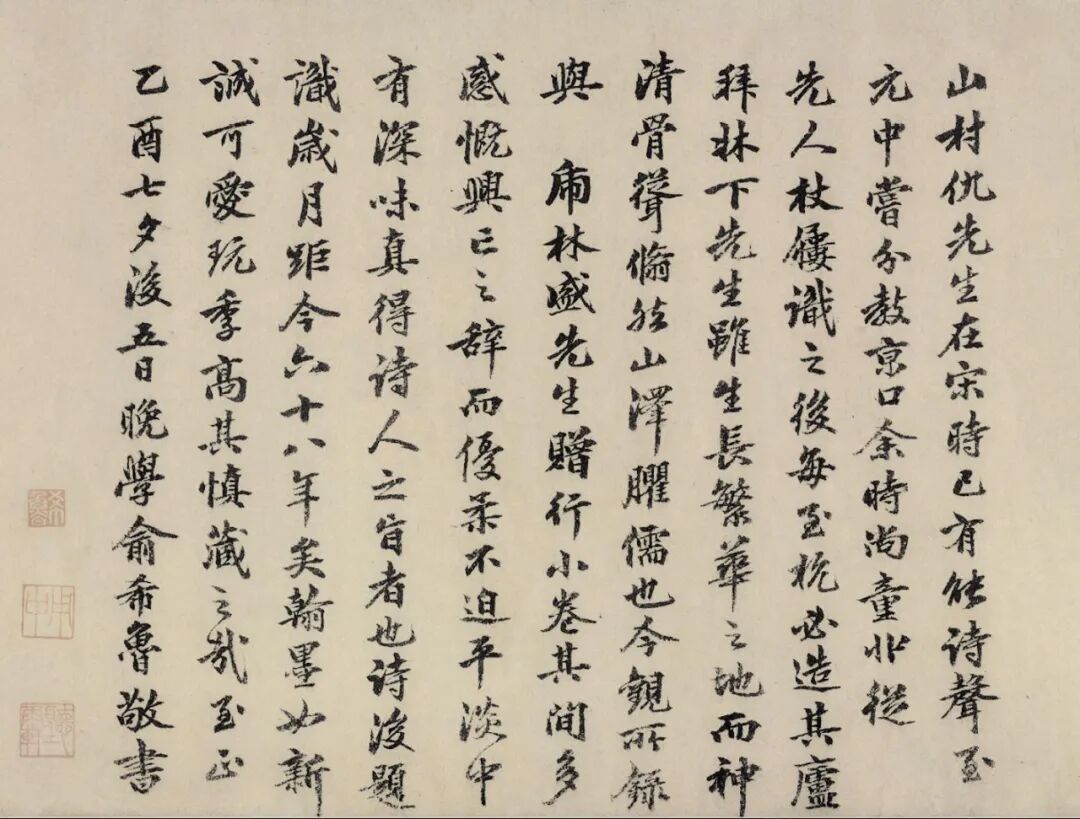 山村仇先生在宋時已有能詩聲至
元中嘗分教京口余時尚童丱從
先人杖屨識之後每至杭必造其廬
拜牀下先生雖生長繁華之地而神
清骨聳翛然山澤臞儒也今觀所錄
與 甫林盛先生贈行小卷其間多
感慨興亡之辭而優柔不迫平淡中
有深味真得詩人之旨者也詩後題
識歲月距今六十八年矣翰墨如新
誠可愛玩季高其慎藏之哉至正
乙酉七夕後五日晚學俞希魯敬書